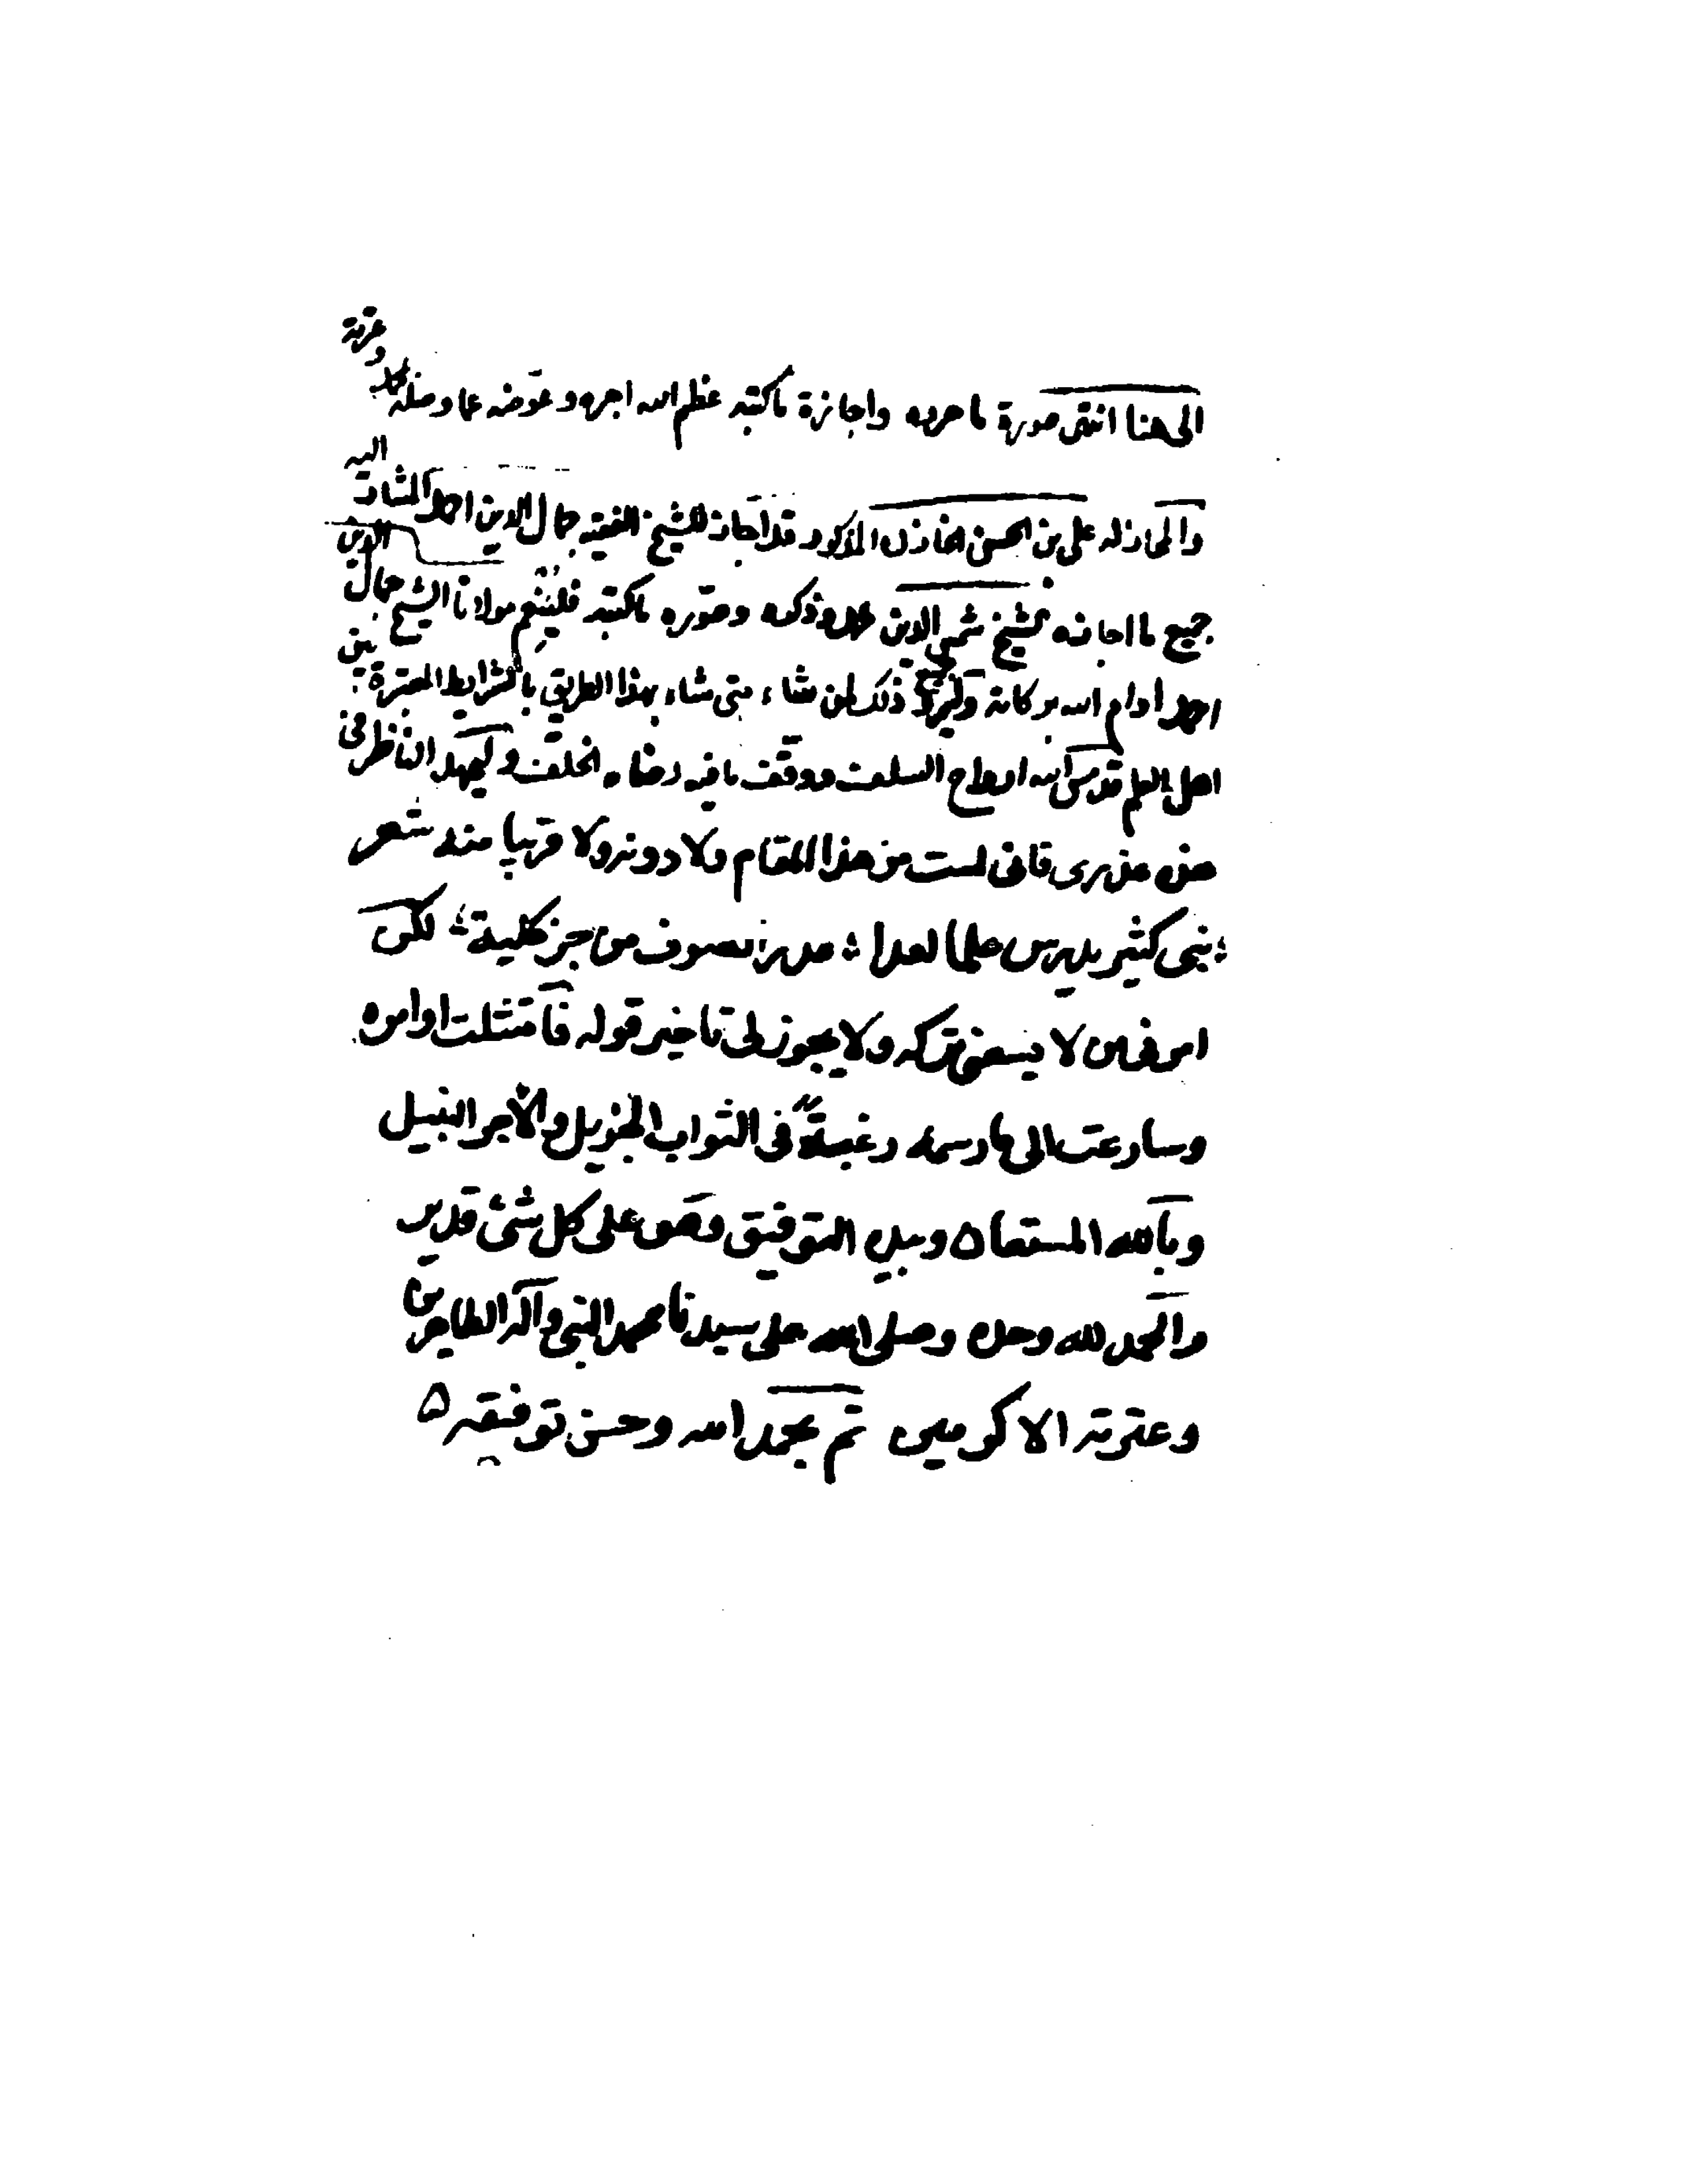 الى هنا انتهى صورة ما حرره واجازة ما كتبه عظم الله اجره وعوضه عما وصله
والحمد لله علي بن الحسن الخازن المذكور قد اجاز للشيخ الفقيه جمال الدين احمد المشار اليه
جميع ما اجازه الشيخ شمس الدين محمد وذكره وصوره ما كتبه مولانا الشيخ جمال الدين
احمد ادام الله بركاته وليرو جميع ذلك لمن شاء متى شاء بهذا الطريق بالشرايط المعتبرة بين
اهل العلم قدس الله ارواح السلف ووفق ما فيه رضاه الخلف وليمهد الناظر في
هذه عذري فاني لست من هذا المقام ولا دونه ولا قريبا منه شعر
لكن
امر من لا يسعني تركه ولا يجوز لي تاخير قوله فامتثلت اوامره
وسارعت الى ما رسمه رغبة في الثواب الجزيل والاجر النبيل
وبالله المستعان وبيده التوفيق وهو على كل شئ قدير
والحمد لله وحده وصلى الله على سيدنا محمد النبي وآله الطاهرين
وعترته الاكرمين تم بحمد الله وحسن توفيقه ه